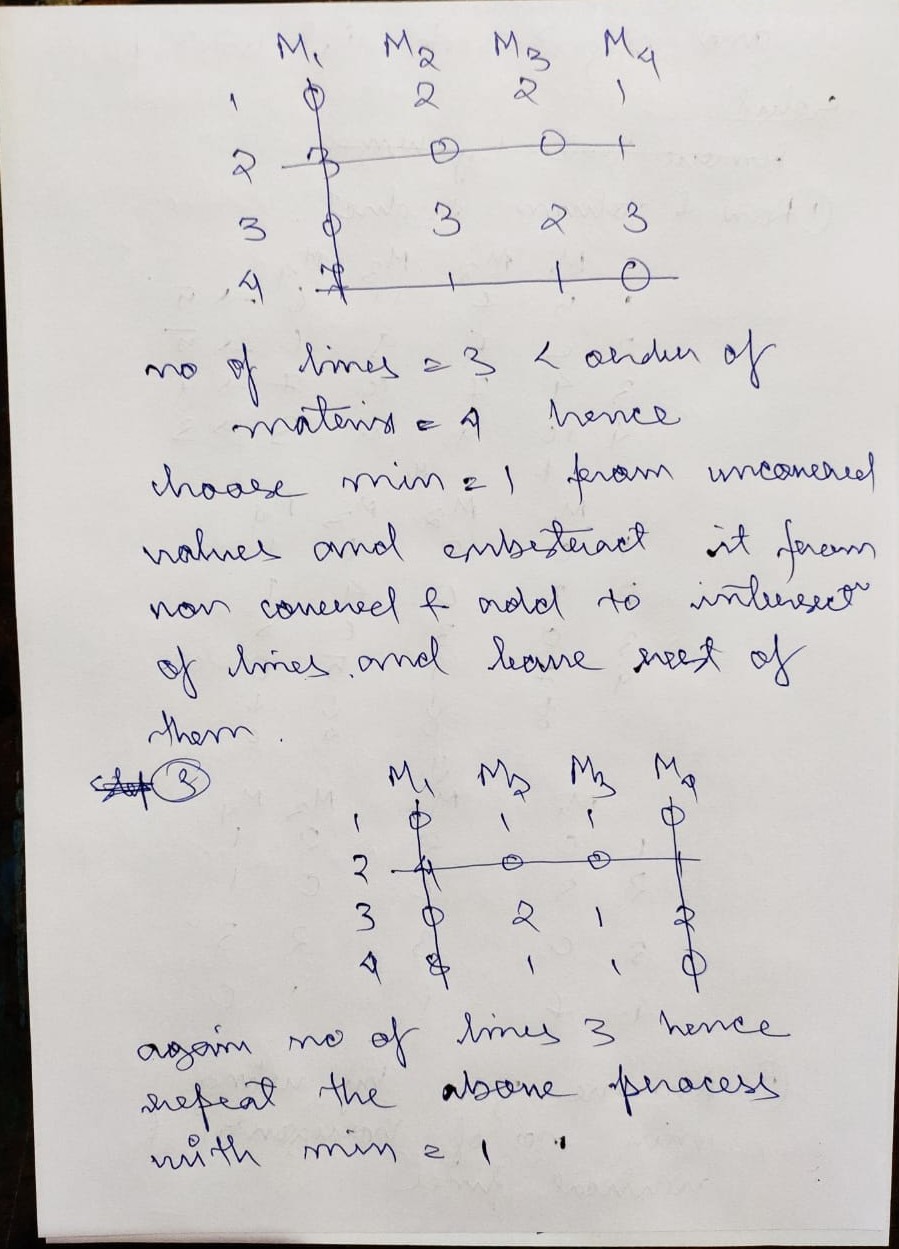 M1 M2 M3 M4
1 0 2 2 1
2 3 0 0 1
3 0 3 2 3
4 7 1 1 0
no of lines = 3 < order of
matrix = 4 hence
choose min = 1 from uncovered
values and substract it from
non covered & add to intersectn
of lines and leave rest of
them.
3 M1 M2 M3 M4
1 0 1 1 0
2 4 0 0 1
3 0 2 1 2
4 8 1 1 0
again no of lines 3 hence
repeat the above process
with min = 1